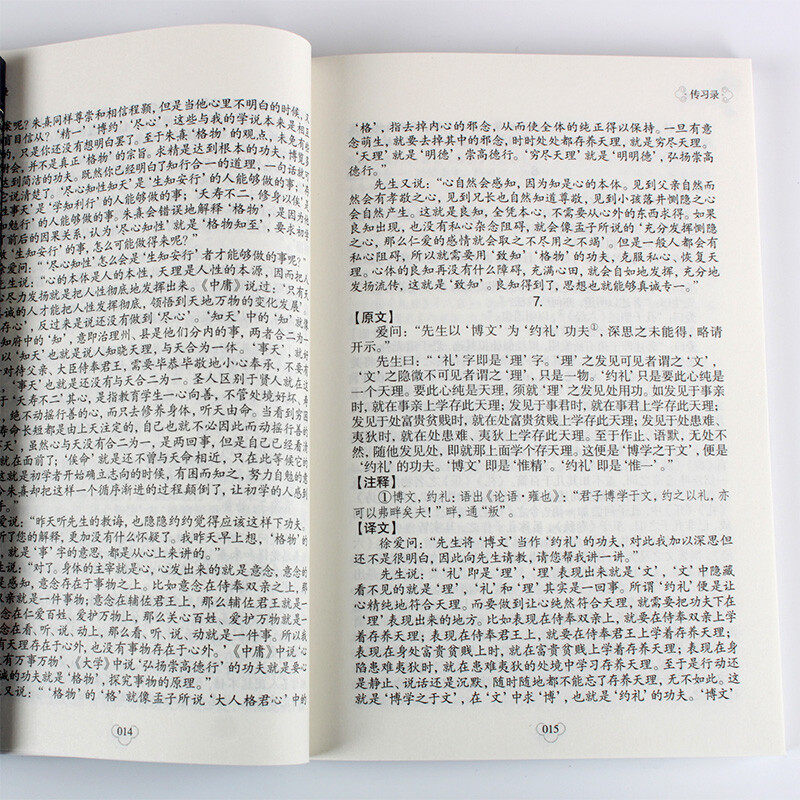 候呢？朱熹同样尊崇和相信程颢，但是当他心里不明白的时候，又
盲目信从？‘精一’‘博约’‘尽心’，这些与我的学说本来是相互
的，只是你还没有想明白罢了。至于朱熹‘格物’的观点，未免有些
附会，并不是真正‘格物’的宗旨。求精是达到根本的功夫，博览是
达到简洁的功夫。既然你已经明白了知行合一的道理，一句话就可
说清楚了。‘尽心知性知天’是‘生知安行’的人能够做的事；
性事天’是‘学知利行’的人能够做的事；‘夭寿不二，修身以俟’是
勉行’的人能够做的事。朱熹会错误地解释‘格物’，是因为他
了前后的因果关系，认为‘尽心知性’就是‘格物知至’，要求初学
做‘生知安行’的事，怎么可能做得来呢？”
爱问：“‘尽心知性’怎么会是‘生知安行’者才能够做的事呢？”
先生说：“心的本体是人的本性，天理是人性的本源，因而把人
心尽力发扬就是把人性彻底地发挥出来。《中庸》说过：‘只有天
诚的人才能把人性发挥彻底，领悟到天地万物的变化发展’。
存心’，反过来是说还没有做到‘尽心’。‘知天’中的‘知’就像
知府中的‘知’，意即治理州、县是他们分内的事，两者合二为一。
以‘知天’也就是说人知晓天理，与天合为一体。‘事天’，就好
对待父亲、大臣侍奉君王，需要毕恭毕敬地小心奉承，不要有
‘事天’也就是还没有与天合二为一。圣人区别于贤人就在这
于‘夭寿不二’其心，是指教育学生一心向善，不管处境好坏、寿
，绝不动摇行善的心，而只去修养身体，听天由命。当看到穷困
寿命长短都是由上天注定的，自己也就不必因此而动摇行善的
天’，虽然心与天没有合二为一，是两回事，但是自己已经看清
就在面前了；‘俟命’就是还不曾与天命相近，只在此等候它的
这就是初学者开始确立志向的时候，有困而知之，努力自勉的意
朱熹却把这样一个循序渐进的过程颠倒了，让初学的人感到
爱说：“昨天听先生的教诲，也隐隐约约觉得应该这样下功夫。
听了您的解释，更加没有什么怀疑了。我昨天早上想，‘格物’的
，就是‘事’字的意思，都是从心上来讲的。”
说：“对了。身体的主宰就是心，心发出来的就是意念，意念的
是感知，意念存在于事物之上。比如意念在侍奉双亲之上，那
亲就是一件事物；意念在辅佐君王上，那么辅佐君王就是一
在仁爱百姓、爱护万物上，那么关心百姓、爱护万物就是一
念在看、听、说、动上，那么看、听、说、动就是一件事。所以
有天理存在于心外，也没有事物存在于心外。’《中庸》中说‘心
没有万事万物’、《大学》中说‘弘扬崇高德行’的功夫就是要
诚的功夫就是‘格物’，探究事物的原理。”
又说：“‘格物’的‘格’就像孟子所说‘大人格君心’中的
014
传习录
‘格’，指去掉内心的邪念，从而使全体的纯正得以保持。一旦有意
念萌生，就要去掉其中的邪念，时时处处都存养天理，就是穷尽天理。
‘天理’就是‘明德’，崇高德行。‘穷尽天理’就是‘明明德’，弘扬崇高
德行。”
先生又说：“心自然会感知，因为知是心的本体。见到父亲自然而
然会有孝敬之心，见到兄长也自然知道尊敬，见到小孩落井恻隐之心
会自然产生。这就是良知，全凭本心，不需要从心外的东西求得。如果
良知出现，也没有私心杂念阻碍，就会像孟子所说的‘充分发挥恻隐
之心，那么仁爱的感情就会取之不尽用之不竭’。但是一般人都会有
私心阻碍，所以就需要用‘致知’‘格物’的功夫，克服私心、恢复天
理。心体的良知再没有什么障碍，充满心田，就会自如地发挥，充分地
发扬流传，这就是‘致知’。良知得到了，思想也就能够真诚专一。”
7.
【原文】
爱问：“先生以‘博文’为‘约礼’功夫①，深思之未能得，略请
开示。”
先生曰：“‘礼’字即是‘理’字。‘理’之发见可见者谓之‘文’，
‘文’之隐微不可见者谓之‘理’，只是一物。‘约礼’只是要此心纯是
一个天理。要此心纯是天理，须就‘理’之发见处用功。如发见于事亲
时，就在事亲上学存此天理；发见于事君时，就在事君上学存此天理；
发见于处富贵贫贱时，就在处富贵贫贱上学存此天理；发见于处患难、
夷狄时，就在处患难、夷狄上学存此天理。至于作止、语默，无处不
然，随他发见处，即就那上面学个存天理。这便是‘博学之于文’，便是
‘约礼’的功夫。‘博文’即是‘惟精’。‘约礼’即是‘惟一’。”
【注释】
①博文，约礼：语出《论语·雍也》：“君子博学于文，约之以礼，亦
可以弗畔矣夫！”畔，通“叛”。
【译文】
徐爱问：“先生将‘博文’当作‘约礼’的功夫，对此我加以深思但
还不是很明白，因此向先生请教，请您帮我讲一讲。”
先生说：“‘礼’即是‘理’，‘理’表现出来就是‘文’，‘文’中隐藏
看不见的就是‘理’，‘礼’和‘理’其实是一回事。所谓‘约礼’便是让
心精纯地符合天理。而要做到让心纯然符合天理，就需要把功夫下在
‘理’表现出来的地方。比如表现在侍奉双亲上，就要在侍奉双亲上学
着存养天理；表现在侍奉君王上，就要在侍奉君王上学着存养天理；
表现在身处富贵贫贱上时，就在富贵贫贱上学着存养天理；表现在身
陷患难夷狄时，就在患难夷狄的处境中学习存养天理。至于是行动还
是静止、说话还是沉默，随时随地都不能忘了存养天理，无不如此。这
就是‘博学之于文’，在‘文’中求‘博’，也就是‘约礼’的功夫。‘博文’
015